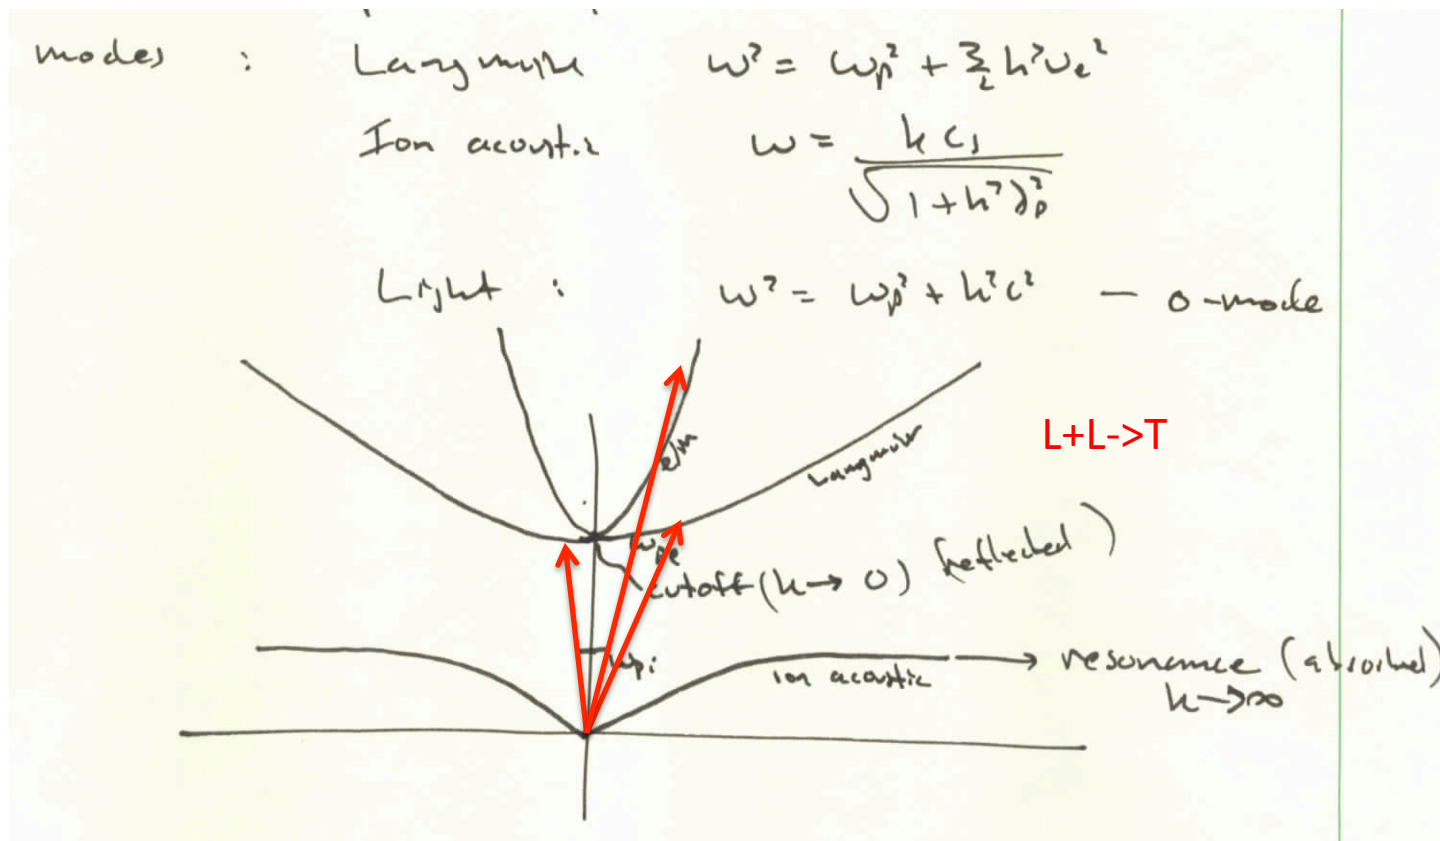 modes : Langmuir ω² = ωp² + 3/2 k² ve²
Ion acoustic ω = k cs / √(1 + k² λD²)
Light : ω² = ωp² + k²c² — o-mode
L+L->T
e/m
Langmuir
ωpe
cutoff (k → 0) (reflected)
ωpi
ion acoustic
→ resonance (absorbed)
k→∞